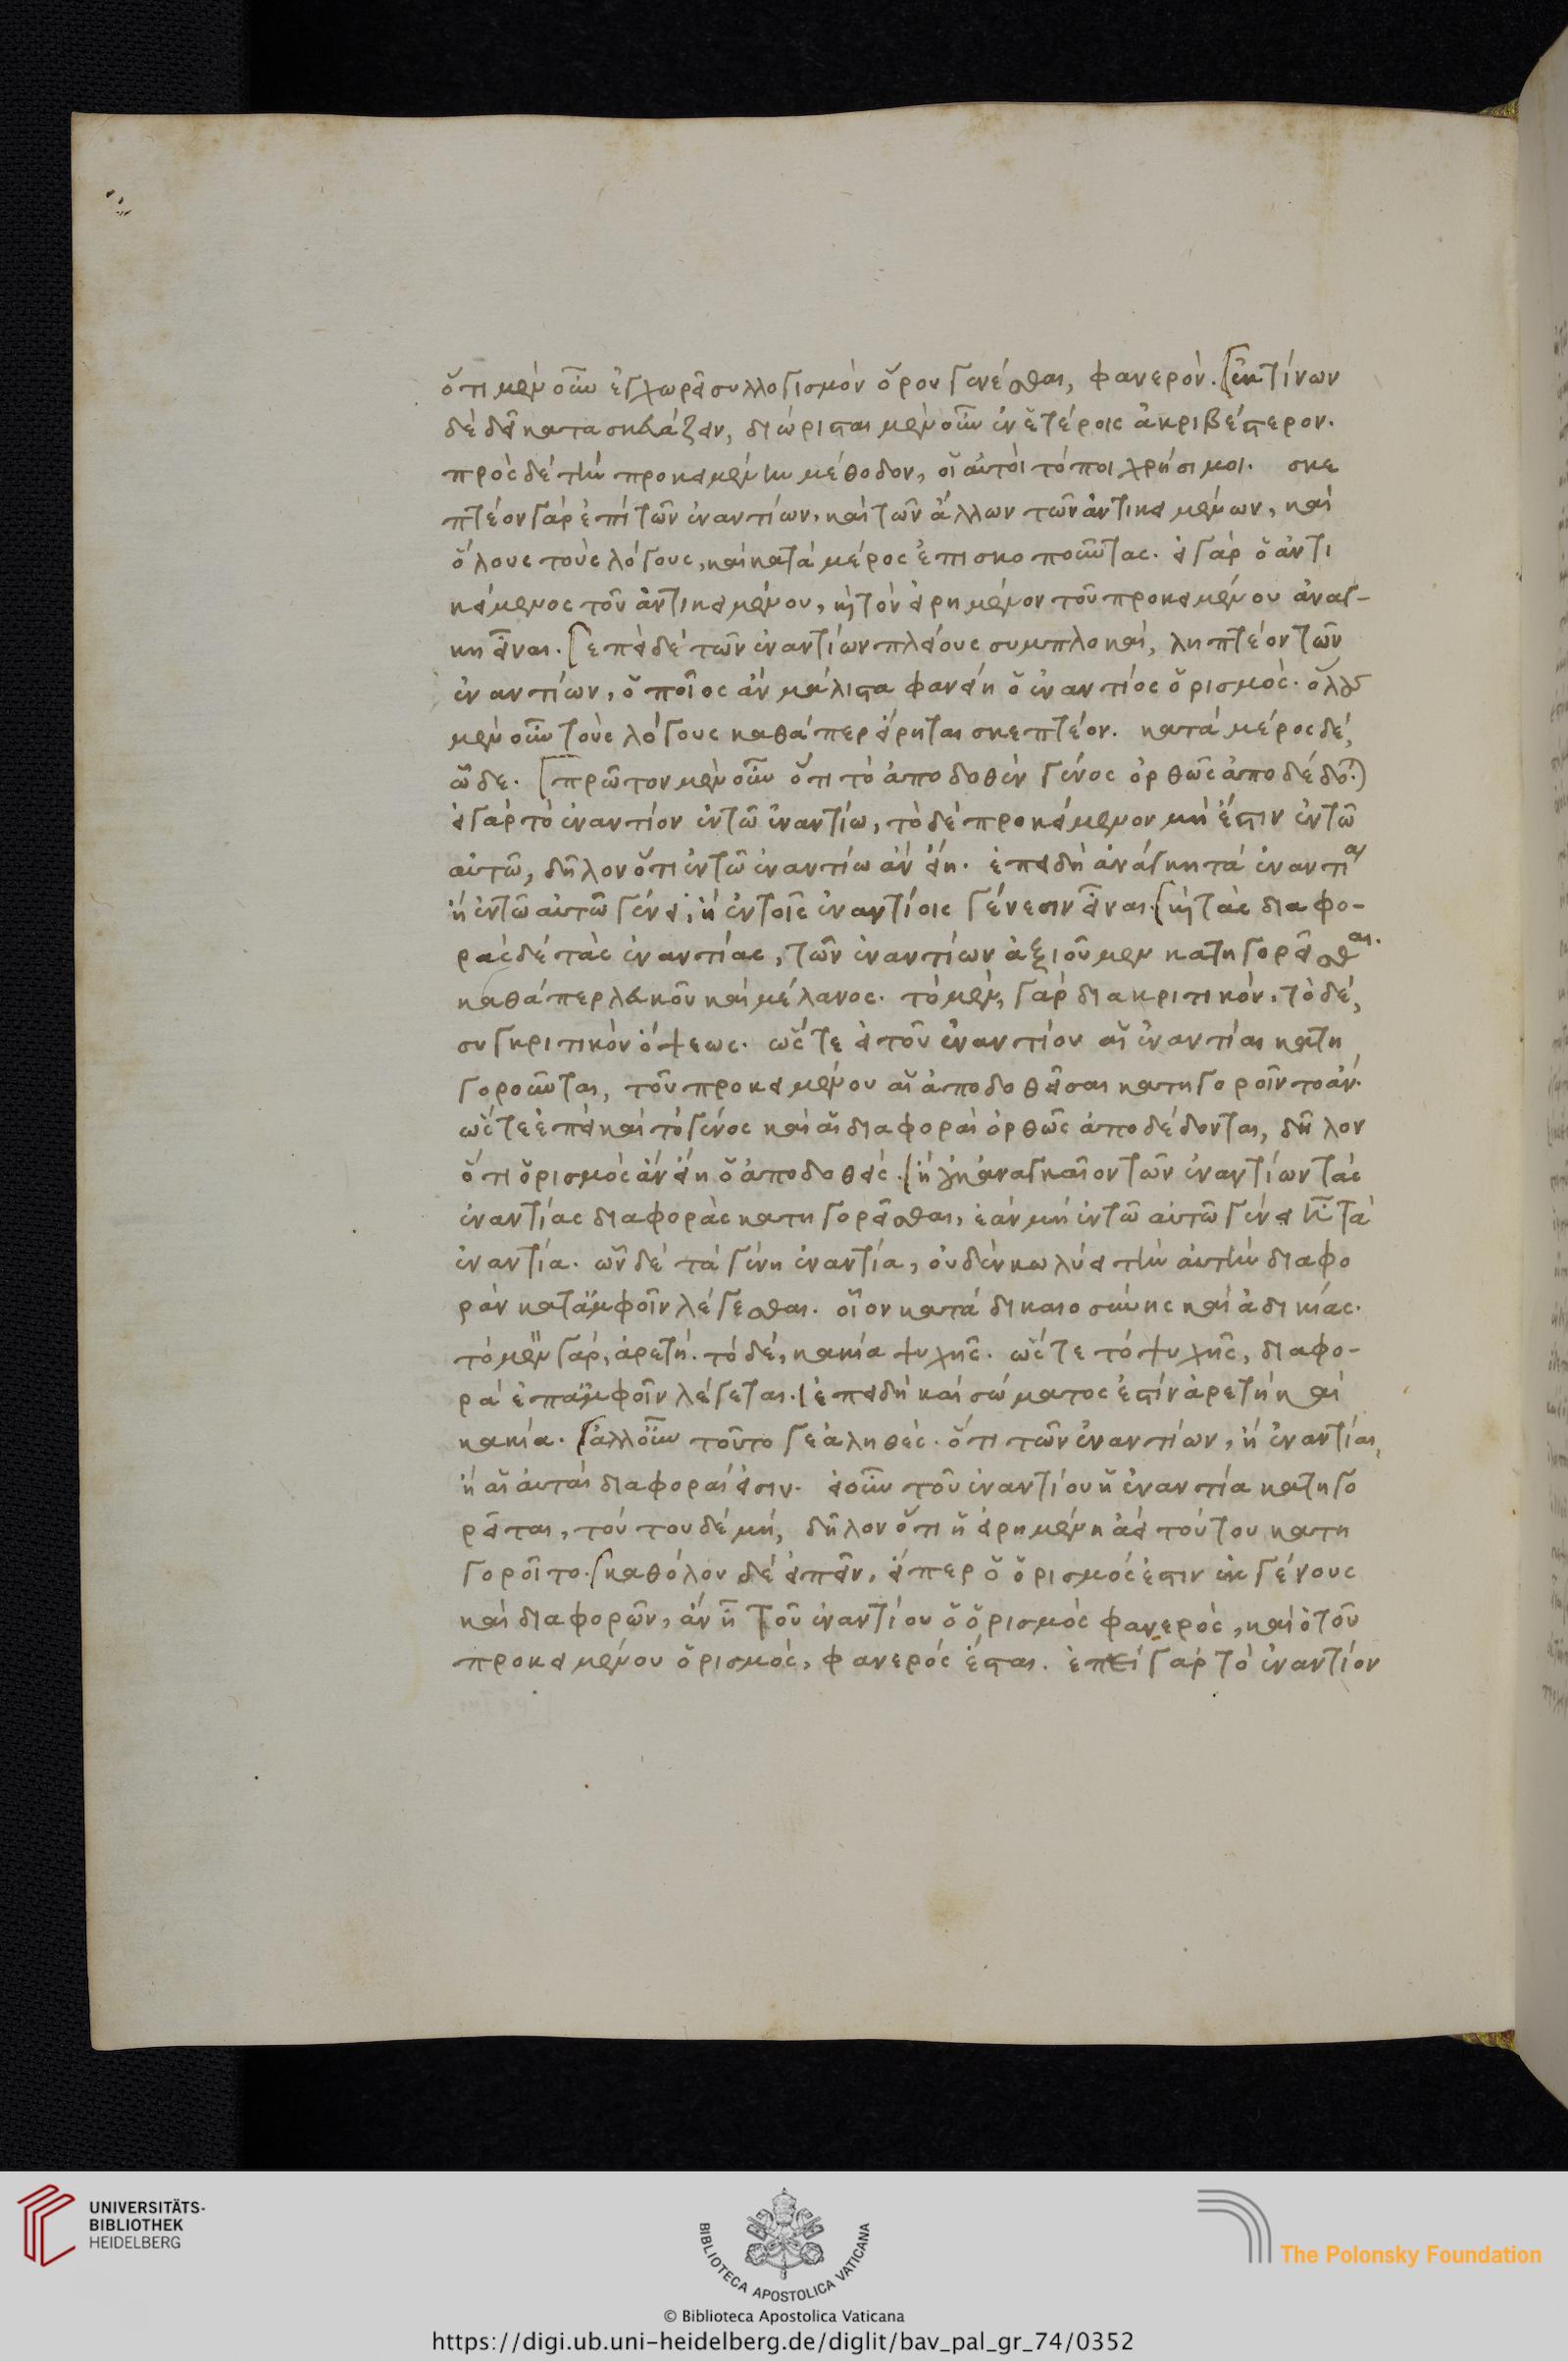 ὅτι μὲν οὖν ἐγχωρεῖ συλλογισμὸν ὅρου γενέσθαι, φανερόν. ἐκ τίνων
δὲ δεῖ κατασκευάζειν, διώρισται μὲν οὖν ἐν ἑτέροις ἀκριβέστερον.
πρὸς δὲ τὴν προκειμένην μέθοδον, οἱ αὐτοὶ τόποι χρήσιμοι. σκε
πτέον γὰρ ἐπὶ τῶν ἐναντίων, καὶ τῶν ἄλλων τῶν ἀντικειμένων, καὶ
ὅλους τοὺς λόγους, καὶ κατὰ μέρος ἐπισκοποῦντας. εἰ γὰρ ὁ ἀντι
κείμενος τοῦ ἀντικειμένου, καὶ τὸν εἰρημένον τοῦ προκειμένου ἀναγ-
κη εἶναι. ἐπεὶ δὲ τῶν ἐναντίων πλείους συμπλοκαί, ληπτέον τῶν
ἐναντίων, ὁποῖος ἂν μάλιστα φανείη ὁ ἐναντίος ὁρισμός. ὅλους
μὲν οὖν τοὺς λόγους καθάπερ εἴρηται σκεπτέον. κατὰ μέρος δέ,
ὧδε. πρῶτον μὲν οὖν ὅτι τὸ ἀποδοθὲν γένος ὀρθῶς ἀποδέδο.
εἰ γὰρ τὸ ἐναντίον ἐν τῶ ἐναντίω, τὸ δὲ προκείμενον μή ἐστιν ἐν τῶ
αὐτῶ, δῆλον ὅτι ἐν τῶ ἐναντίω ἂν εἴη. ἐπειδὴ ἀνάγκη τὰ ἐναντία
ἢ ἐν τῶ αὐτῶ γένει, ἢ ἐν τοῖς ἐναντίοις γένεσιν εἶναι. καὶ τὰς διαφο-
ρὰς δὲ τὰς ἐναντίας, τῶν ἐναντίων ἀξιοῦμεν κατηγορεῖσθαι.
καθάπερ λευκοῦ καὶ μέλανος. τὸ μὲν, γὰρ διακριτικόν. τὸ δέ,
συγκριτικὸν ὄψεως. ὥστε εἰ τοῦ ἐναντίου αἱ ἐναντίαι κατη
γοροῦνται, τοῦ προκειμένου αἱ ἀποδοθεῖσαι κατηγοροῖντο ἄν.
ὥστε ἐπεὶ καὶ τὸ γένος καὶ αἱ διαφοραὶ ὀρθῶς ἀποδέδονται, δῆλον
ὅτι ὁρισμὸς ἂν εἴη ὁ ἀποδοθείς. ἢ οὐκ ἀναγκαῖον τῶν ἐναντίων τὰς
ἐναντίας διαφορὰς κατηγορεῖσθαι, ἐὰν μὴ ἐν τῶ αὐτῶ γένει ἦ τὰ
ἐναντία. ὧν δὲ τὰ γένη ἐναντία, οὐδὲν κωλύει τὴν αὐτὴν διαφο
ρὰν κατ' ἀμφοῖν λέγεσθαι. οἷον κατὰ δικαιοσύνης καὶ ἀδικίας.
τὸ μὲν γάρ, ἀρετή. τὸ δέ, κακία ψυχῆς. ὥστε τὸ ψυχῆς, διαφο-
ρὰ ἐπ' ἀμφοῖν λέγεται. ἐπειδὴ καὶ σώματός ἐστιν ἀρετὴ καὶ
κακία. ἀλλ' οὖν τοῦτο γε ἀληθές. ὅτι τῶν ἐναντίων, ἢ ἐναντίαι,
ἢ αἱ αὐταὶ διαφοραί εἰσιν. εἰ οὖν τοῦ ἐναντίου ἡ ἐναντία κατηγο
ρεῖται, τούτου δὲ μή, δῆλον ὅτι ἡ εἰρημένη ἀεὶ τούτου κατη
γοροῖτο. καθόλου δὲ εἰπεῖν, εἴπερ ὁ ὁρισμός ἐστιν ἐκ γένους
καὶ διαφορῶν, ἂν ἦ τοῦ ἐναντίου ὁ ὁρισμὸς φανερός, καὶ ὁ τοῦ
προκειμένου ὁρισμός, φανερός ἔσται. ἐπεὶ γὰρ τὸ ἐναντίον
UNIVERSITÄTS-
BIBLIOTHEK
HEIDELBERG
BIBLIOTECA APOSTOLICA VATICANA
The Polonsky Foundation
© Biblioteca Apostolica Vaticana
https://digi.ub.uni-heidelberg.de/diglit/bav_pal_gr_74/0352